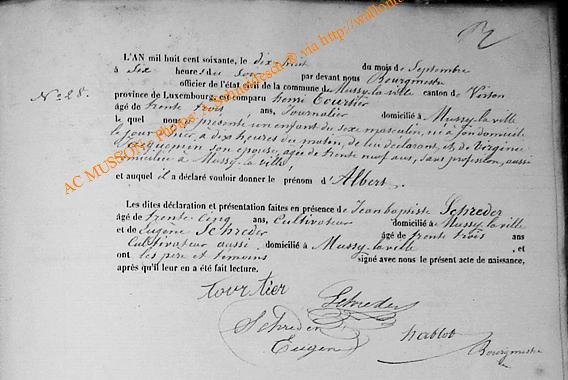 L'AN mil huit cent soixante, le dix huit du mois de Septembre
à Six heures du Soir par devant nous Bourgmestre
officier de l'état civil de la commune de Mussy-la-ville canton de Virton
province de Luxembourg, est comparu henri Tourtier
N° 28. âgé de trente trois ans, Journalier domicilié à Mussy-la-ville
le quel nous a présenté, un enfant du sexe masculin, né à son domicile
le jour d'hier, à dix heures du matin, de lui déclarant, et de Virginie
Jacquemin son épouse, agée de trente neuf ans, sans profession, aussi
domiciliée à Mussy-la-ville,
et auquel il a déclaré vouloir donner le prénom d'Albert.
Les dites déclaration et présentation faites en présence de Jean baptiste Schreder
âgé de trente cinq ans, Cultivateur domicilié à Mussy-la-ville
et de Eugène Schreder âgé de trente trois ans
Cultivateur aussi domicilié à Mussy-la-ville et
ont les père et témoins signé avec nous le présent acte de naissance,
après qu'il leur en a été fait lecture.
tourtier Schreder
Schreder hablot
Eugene Bourgmestre
AC MUSSON - Photos ® via http://wallonia